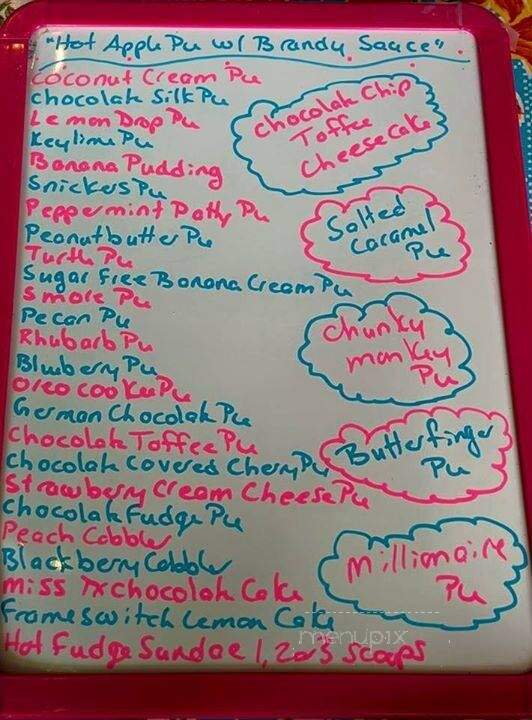 "Hot Apple Pie w/ Brandy Sauce"
Coconut Cream Pie
Chocolate Silk Pie
Lemon Drop Pie
Keylime Pie
Banana Pudding
Snickers Pie
Peppermint Patty Pie
Peanutbutter Pie
Turtle Pie
Sugar Free Banana Cream Pie
Smore Pie
Pecan Pie
Rhubarb Pie
Blueberry Pie
Oreo Cookie Pie
German Chocolate Pie
Chocolate Toffee Pie
Chocolate Covered Cherry Pie
Strawberry Cream Cheese Pie
Chocolate Fudge Pie
Peach Cobbler
Blackberry Cobbler
Miss TX Chocolate Cake
Frameswitch Lemon Cake
Hot Fudge Sundae 1, 2 or 3 Scoops
Chocolate Chip
Toffee
Cheesecake
Salted
Caramel
Pie
Chunky
Monkey
Pie
Butterfinger
Pie
Millionaire
Pie
menupix